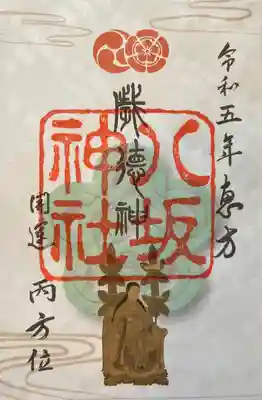 令和五年恵方
歳徳神
八坂
神社
開運 丙方位